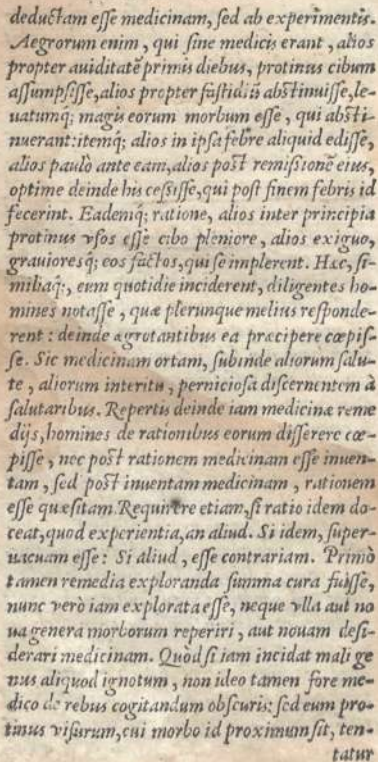 deductam esse medicinam, sed ab experimentis.
Aegrorum enim, qui sine medicis erant, alios
propter auiditatē primis diebus, protinus cibum
assumpsisse, alios propter fastidiū abstinuisse, le-
uatumq; magis eorum morbum esse, qui absti-
nuerant: itemq; alios in ipsa febre aliquid edisse,
alios paulò ante eam, alios post remissionē eius,
optime deinde his cessisse, qui post finem febris id
fecerint. Eademq; ratione, alios inter principia
protinus vsos esse cibo pleniore, alios exiguo,
grauioresq; eos factos, qui se implerent. Hæc, si-
miliaq;, cum quotidie inciderent, diligentes ho-
mines notasse, quæ plerunque melius responde-
rent: deinde ægrotantibus ea præcipere cœpis-
se. Sic medicinam ortam, subinde aliorum salu-
te, aliorum interitu, perniciosa discernentem à
salutaribus. Repertis deinde iam medicinæ reme
dijs, homines de rationibus eorum disserere cœ-
pisse, nec post rationem medicinam esse inuen-
tam, sed post inuentam medicinam, rationem
esse quæsitam. Requirere etiam, si ratio idem do-
ceat, quod experientia, an aliud. Si idem, super-
uacuam esse: Si aliud, esse contrariam. Primò
tamen remedia exploranda summa cura fuisse,
nunc verò iam explorata esse, neque vlla aut no
ua genera morborum reperiri, aut nouam desi-
derari medicinam. Quòd si iam incidat mali ge
nus aliquod ignotum, non ideo tamen fore me-
dico de rebus cogitandum obscuris: sed eum pro-
tinus visurum, cui morbo id proximum sit, ten-
tatur